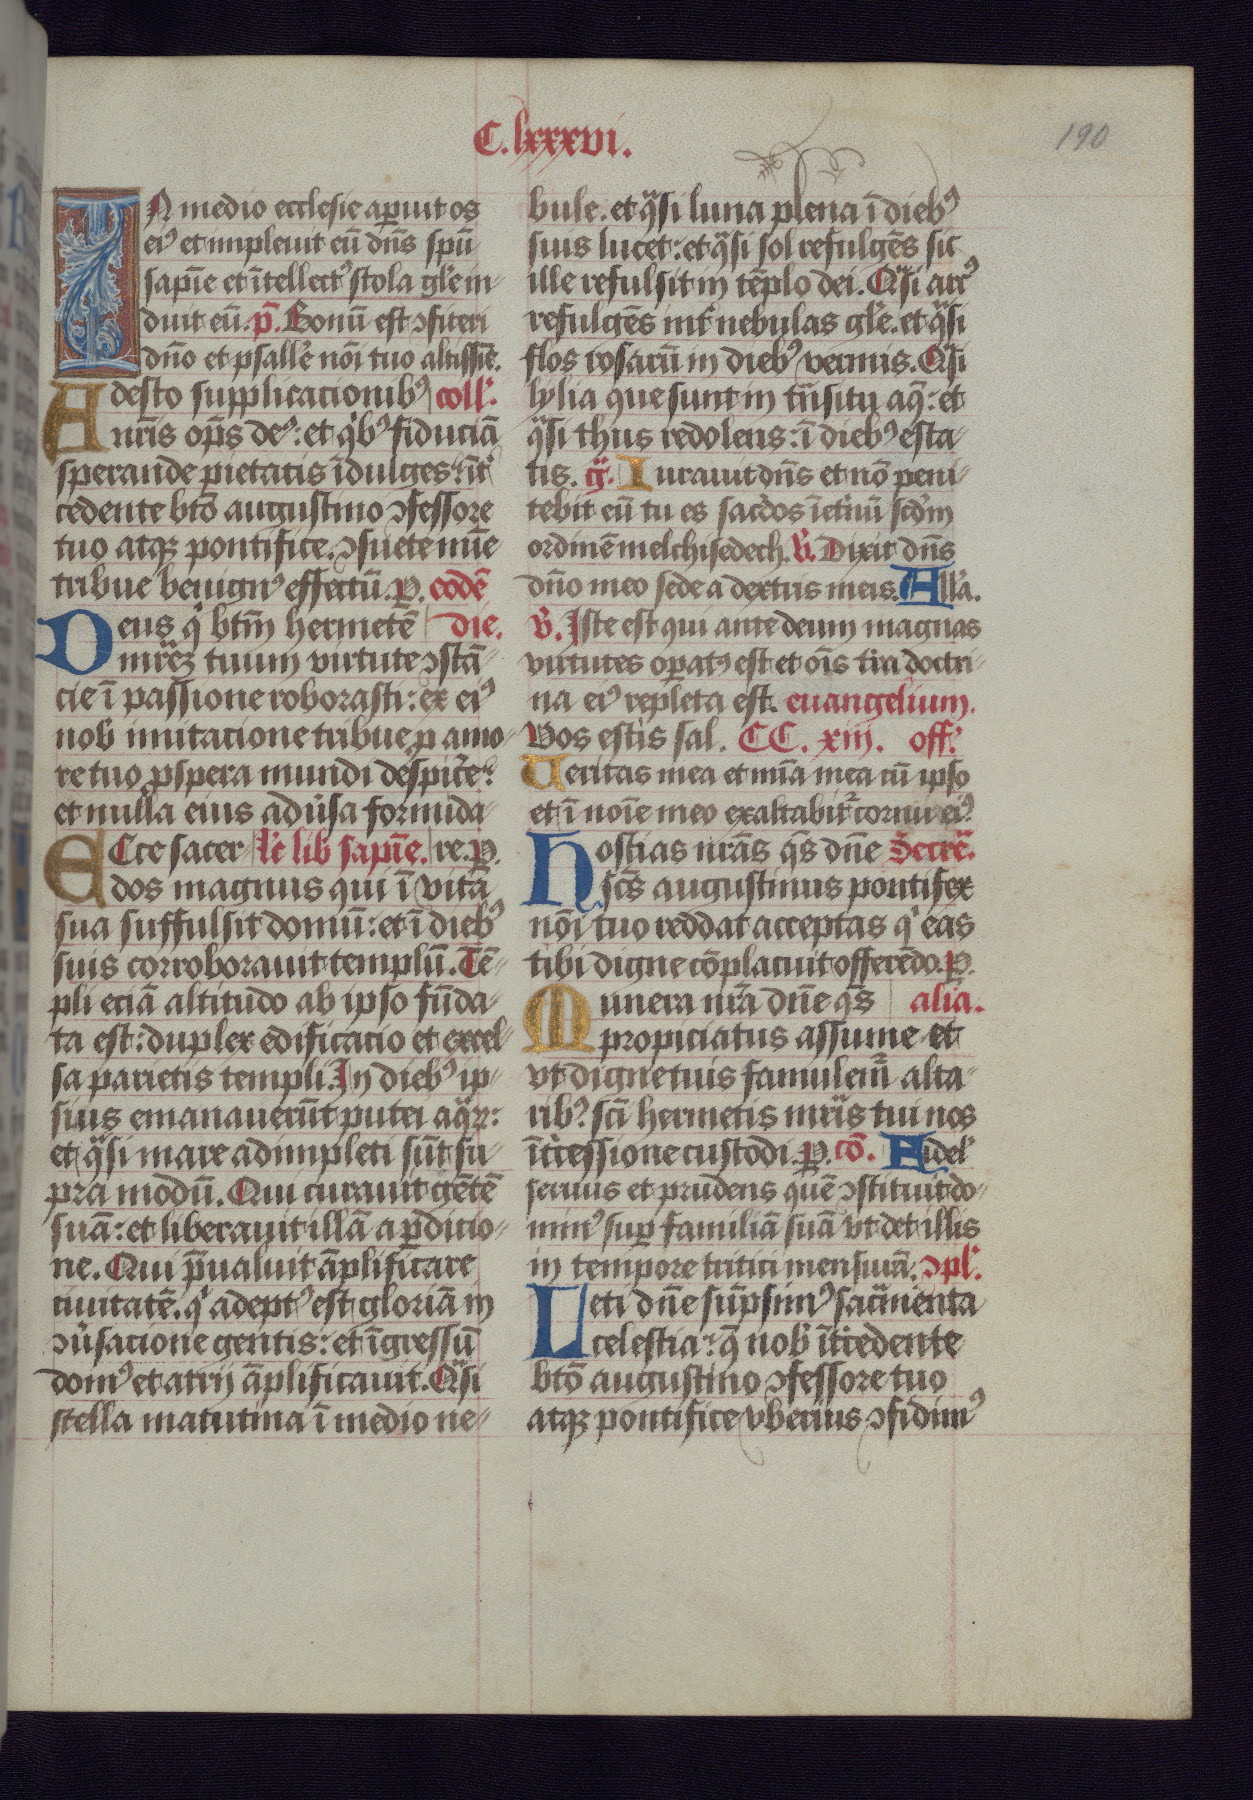 C. lxxxvi.
190
IN medio ecclesie aperuit os
eiꝰ et impleuit eū dn̄s spū
sapiē et ītellectꝰ stola gl̄e in-
duit eū. p̄. Bonū est ꝯfiteri
dn̄o et psalle᷑ nōi tuo altissīe.
Adesto supplicacionibꝰ coll᷑.
nr̄is op̄s deꝰ: et qͥbꝰ fiduciā
sperande pietatis īdulges: īt᷑
cedente btō augustino ꝯfessore
tuo atqꝫ pontifice. ꝯsuete mīe
tribue benignꝰ effectū. P. eodē
Deus qͥ btm̄ hermetē die.
mr̄eꝫ tuum virtute ꝯstā-
cie ī passione roborasti: ex eiꝰ
nob imitacione tribue ꝓ amo-
re tuo ꝓspera mundi despice᷑:
et nulla eius adūsa formida-
ECce sacer le᷑ lib sapiē. re. P.
dos magnus qui ī vita
sua suffulsit domū: et ī diebꝰ
suis corroborauit templū. Tē-
pli eciā altitudo ab ipso fūda-
ta est: duplex edificacio et excel-
sa parietis templi. In diebꝰ ip-
sius emanauerūt putei aqͣꝝ:
et qͣsi mare adimpleti sūt su-
pra modū. Qui curauit gētē
suā: et liberauit illā a ꝑdicio-
ne. Qui p̄ualuit āplificare
ciuitatē. qͥ adeptꝰ est gloriā in
ꝯūsacione gentis: et īgressū
domꝰ et atrij āplificauit. Qͣsi
stella matutina ī medio ne-
bule. et qͣsi luna plena ī diebꝰ
suis lucet: et qͣsi sol refulgēs sic
ille refulsit in tēplo dei. Qͣsi arcꝰ
refulgēs int᷑ nebulas gl̄e. et qͣsi
flos rosarū in diebꝰ vernis. Qͣsi
lylia que sunt in trͣnsitu aq̄: et
qͣsi thus redolens: ī diebꝰ esta-
tis. gͣ. Iurauit dn̄s et nō peni-
tebit eū tu es sacerdos ī et᷑nū scd̄m
ordinē melchisedech. V᷑. Dixit dn̄s
dn̄o meo sede a dextris meis. All᷑a.
V᷑. Iste est qui ante deum magnas
virtutes opatꝰ est et oīs t᷑ra doctri-
na eiꝰ repleta est. euangelium.
Vos estis sal. CC. xiii. off᷑.
Ueritas mea et mīa mea cū ipso
et ī noīe meo exaltabit᷑ cornu eiꝰ.
Hostias nr̄as qs̄ dn̄e Secre᷑.
scs̄ augustinus pontifex
nōi tuo reddat acceptas qͥ eas
tibi digne cōplacuit offerēdo. P.
Munera nr̄a dn̄e qs̄ alia.
propiciatus assume et
vt digne tuis famulem᷑ alta-
ribꝰ sci hermetis mr̄is tui nos
īt᷑cessione custodi. P. cō. Fidel᷑
seruus et prudens quē ꝯstituit do-
minꝰ sup familiā suā vt det illis
in tempore tritici mensurā. ꝯpl᷑.
Leti dn̄e sūpsimꝰ sacͣmenta
celestia: q̄ nob īt᷑cedente
btō augustino ꝯfessore tuo
atqꝫ pontifice vberius ꝯfidimꝰ